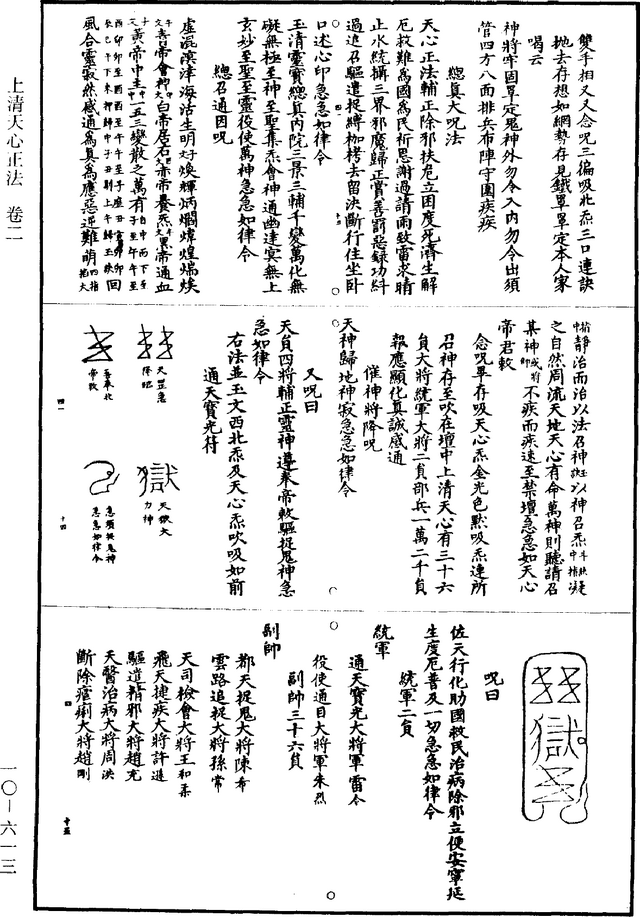 雙手相叉又念呪三徧吸北炁三口連訣
拋去存想如網勢存見鐵單罩定本人家
喝云
神將牢固罩定鬼神外勿令入內勿令出須
管四方八面排兵布陣守圍疾疾
總真大呪法
天心正法輔正除邪扶危立困度死濟生解
厄救難為國為民祈恩謝過請雨致雷求晴
止水統攝三界邪魔歸正賞善罰惡錄功糾
過追召驅遣捉縛枷栲去留決斷行住坐卧
口述心印急急如律令
玉清靈寶總真內院三景三輔千變萬化無
礙無極至神至聖集炁會神通幽達冥無上
玄妙至聖至靈役使萬神急急如律令
總召通因呪
虛混溟涬海活生明煥輝炳爛煒煌煸煐
青帝會神白帝居石赤帝養炁黑帝通血
黃帝中主一五三變散之萬有
回
風合靈寂然感通為真為應惡逆難萌
靜治而治以法召神以神召炁
之自然周流天地天心有命萬神則聽請召
其神不疾而疾速至禁壇急急如天心
帝君敕
念呪畢存吸天心炁金光色默吸炁連所
召神存至吹在壇中上清天心有三十六
員大將統軍大將二員部兵一萬二千員
報應顯化真誠感通
催神將降呪
天神歸地神寂急急如律令
又呪曰
天員四將輔正靈神遵奉帝敕驅捉鬼神急
急如律令
右法並玉文西北炁及天心炁吹吸如前
通天寶光符
天罡急
降臨
天獄大
力神
吾奉北
帝敕
急須捉鬼神
急急如律令
呪曰
佐天行化助國救民治病除邪立便安寧延
生度厄普及一切急急如律令
統軍二員
統軍
通天寶光大將軍雷令
役使通目大將軍朱烈
副帥三十六員
副帥
都天捉鬼大將陳希
雲路追捉大將孫常
天司檢會大將王和柔
飛天捷疾大將許進
驅遣精邪大將趙充
天醫治病大將周洪
斷除瘧痢大將趙剛
上清天心正法 卷二
一〇－六一三